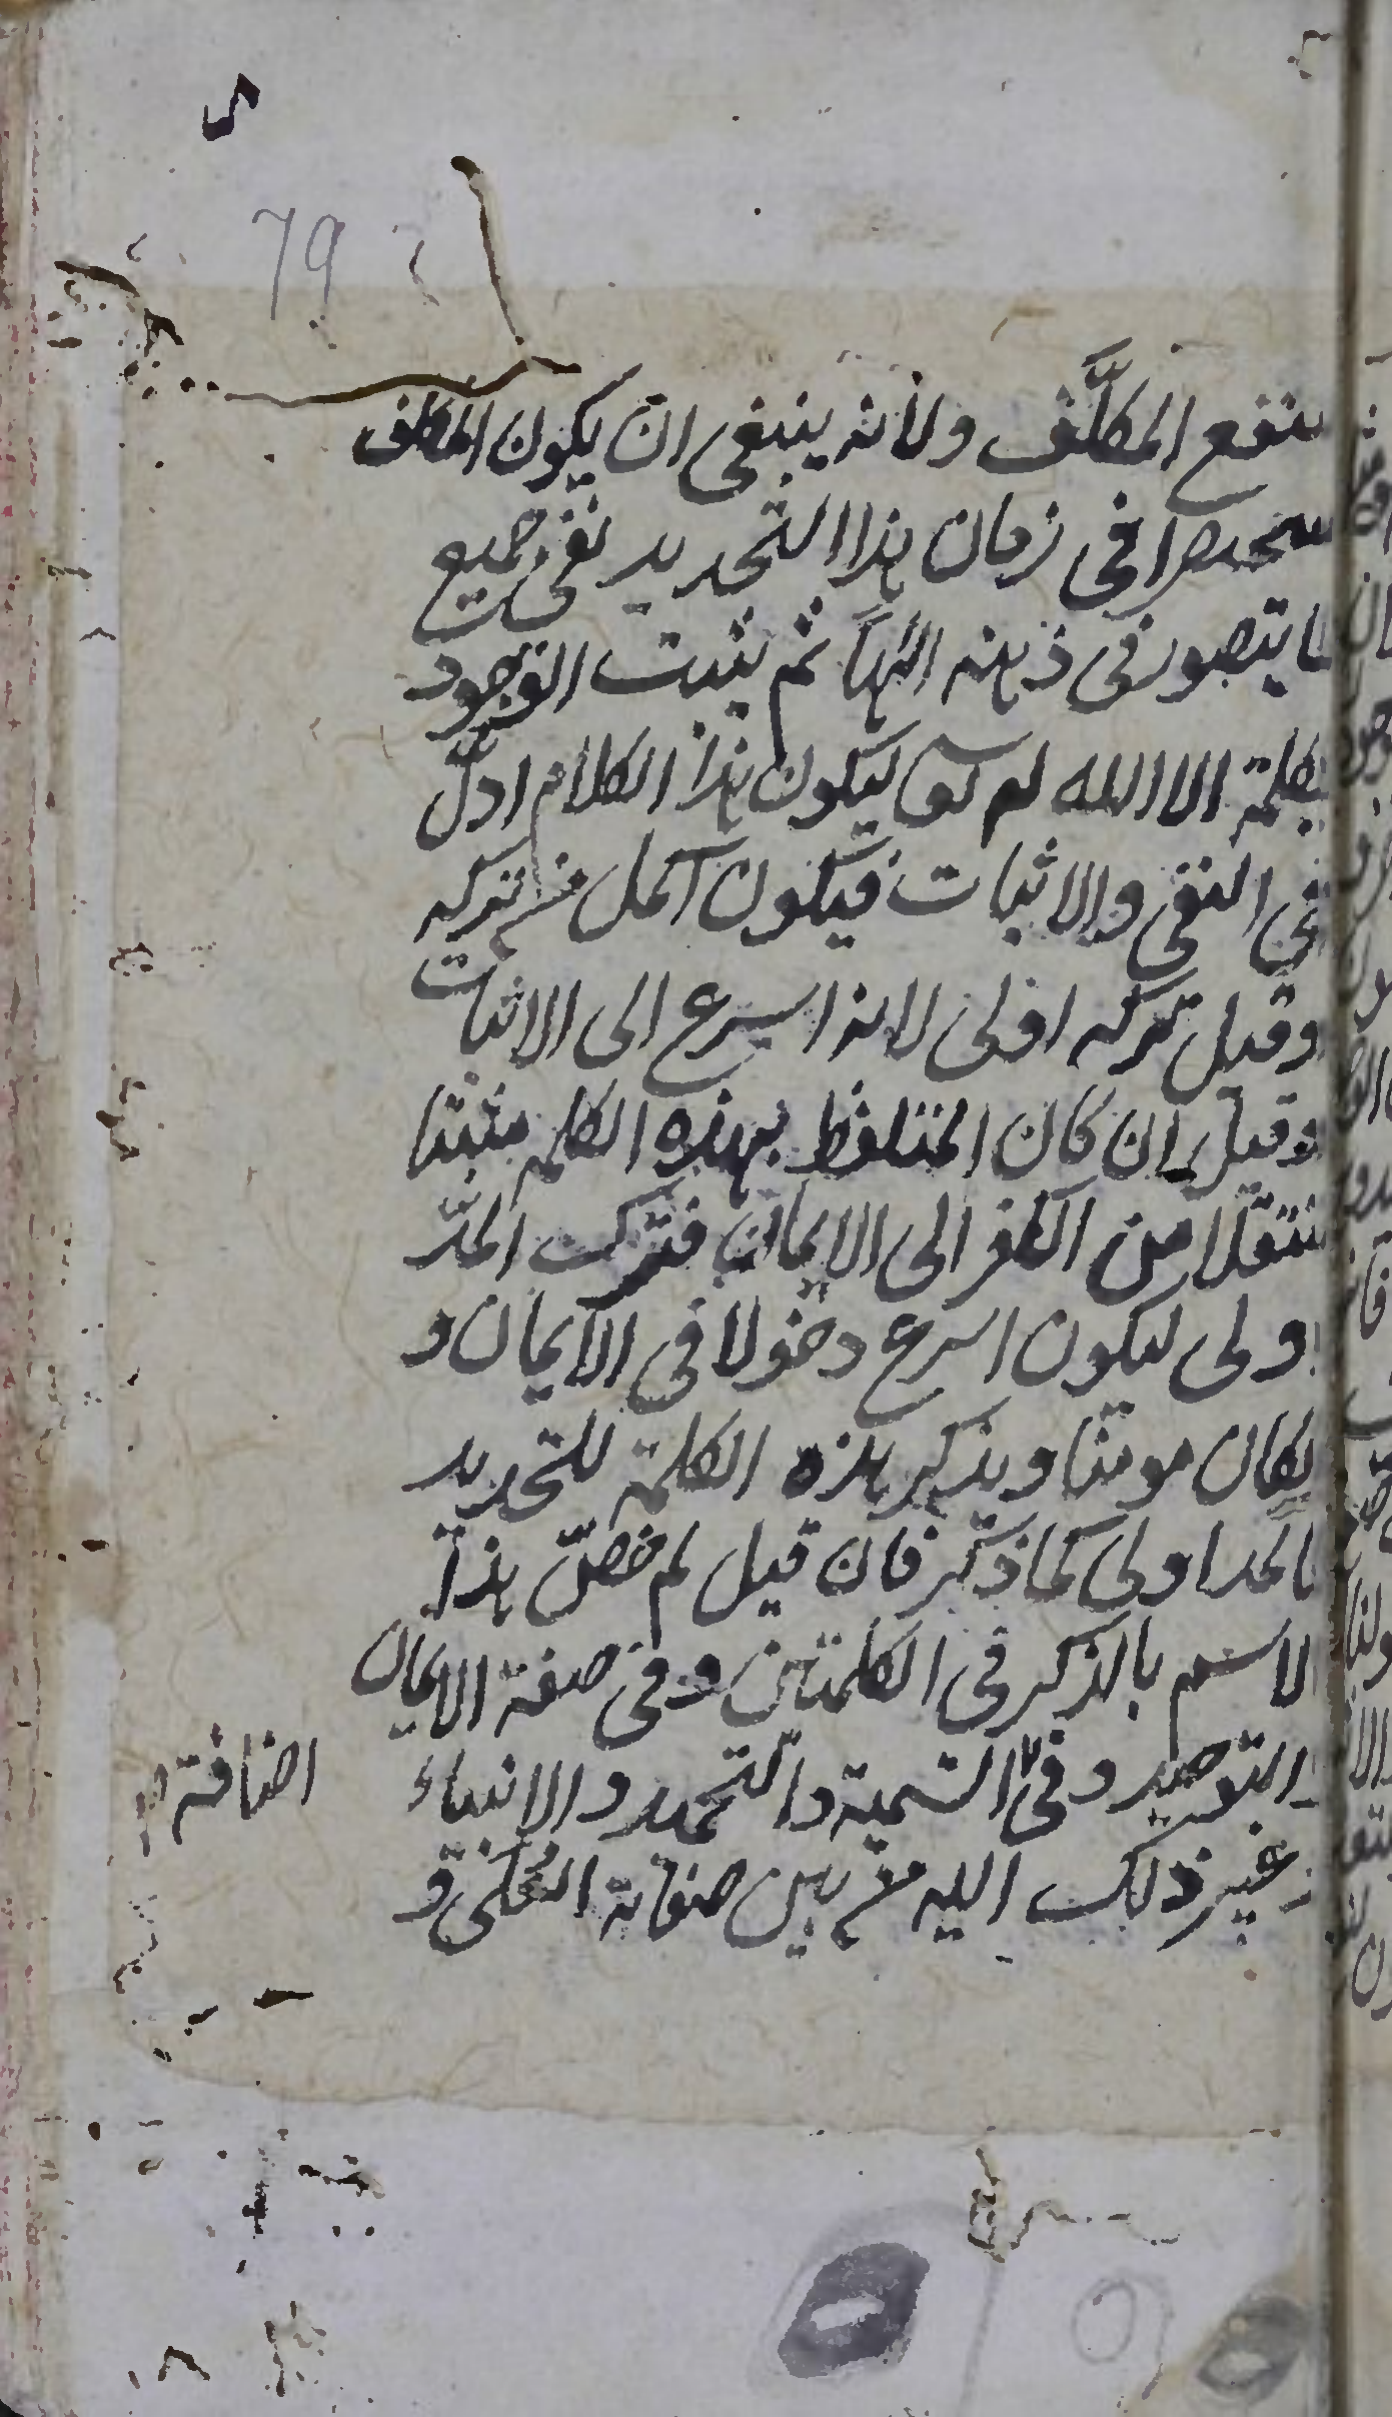 79
ينفع المكلَّف ولانه ينبغى ان يكون المكلف
مستحضرا فى زمان هذا التحديد نفى جميع
ما يتصور فى ذهنه الٰهًا ثم يثبت الوجود
بكلمة الا الله ليكون هذا الكلام ادلّ
فى النفى والاثبات فيكون اكمل من تركه
وقيل تركه اولى لانه اسرع الى الاثبات
وقيل ان كان المتلفظ بهذه الكلمه
منتقلا من الكفر الى الايمان فترك المدّ
اولى ليكون اسرع دخولا فى الايمان و
لو كان مومنا ويذكر هذه الكلمة للتحديد
فالمد اولى كما ذكر فان قيل لم خصّ هذا
الاسم بالذكر فى الكلمتين وفى صفة الايمان
والتوحيد وفى التسمية والتحميد والانبياء
وغير ذلك اليه من بين صفاته العُلى و
اضافة